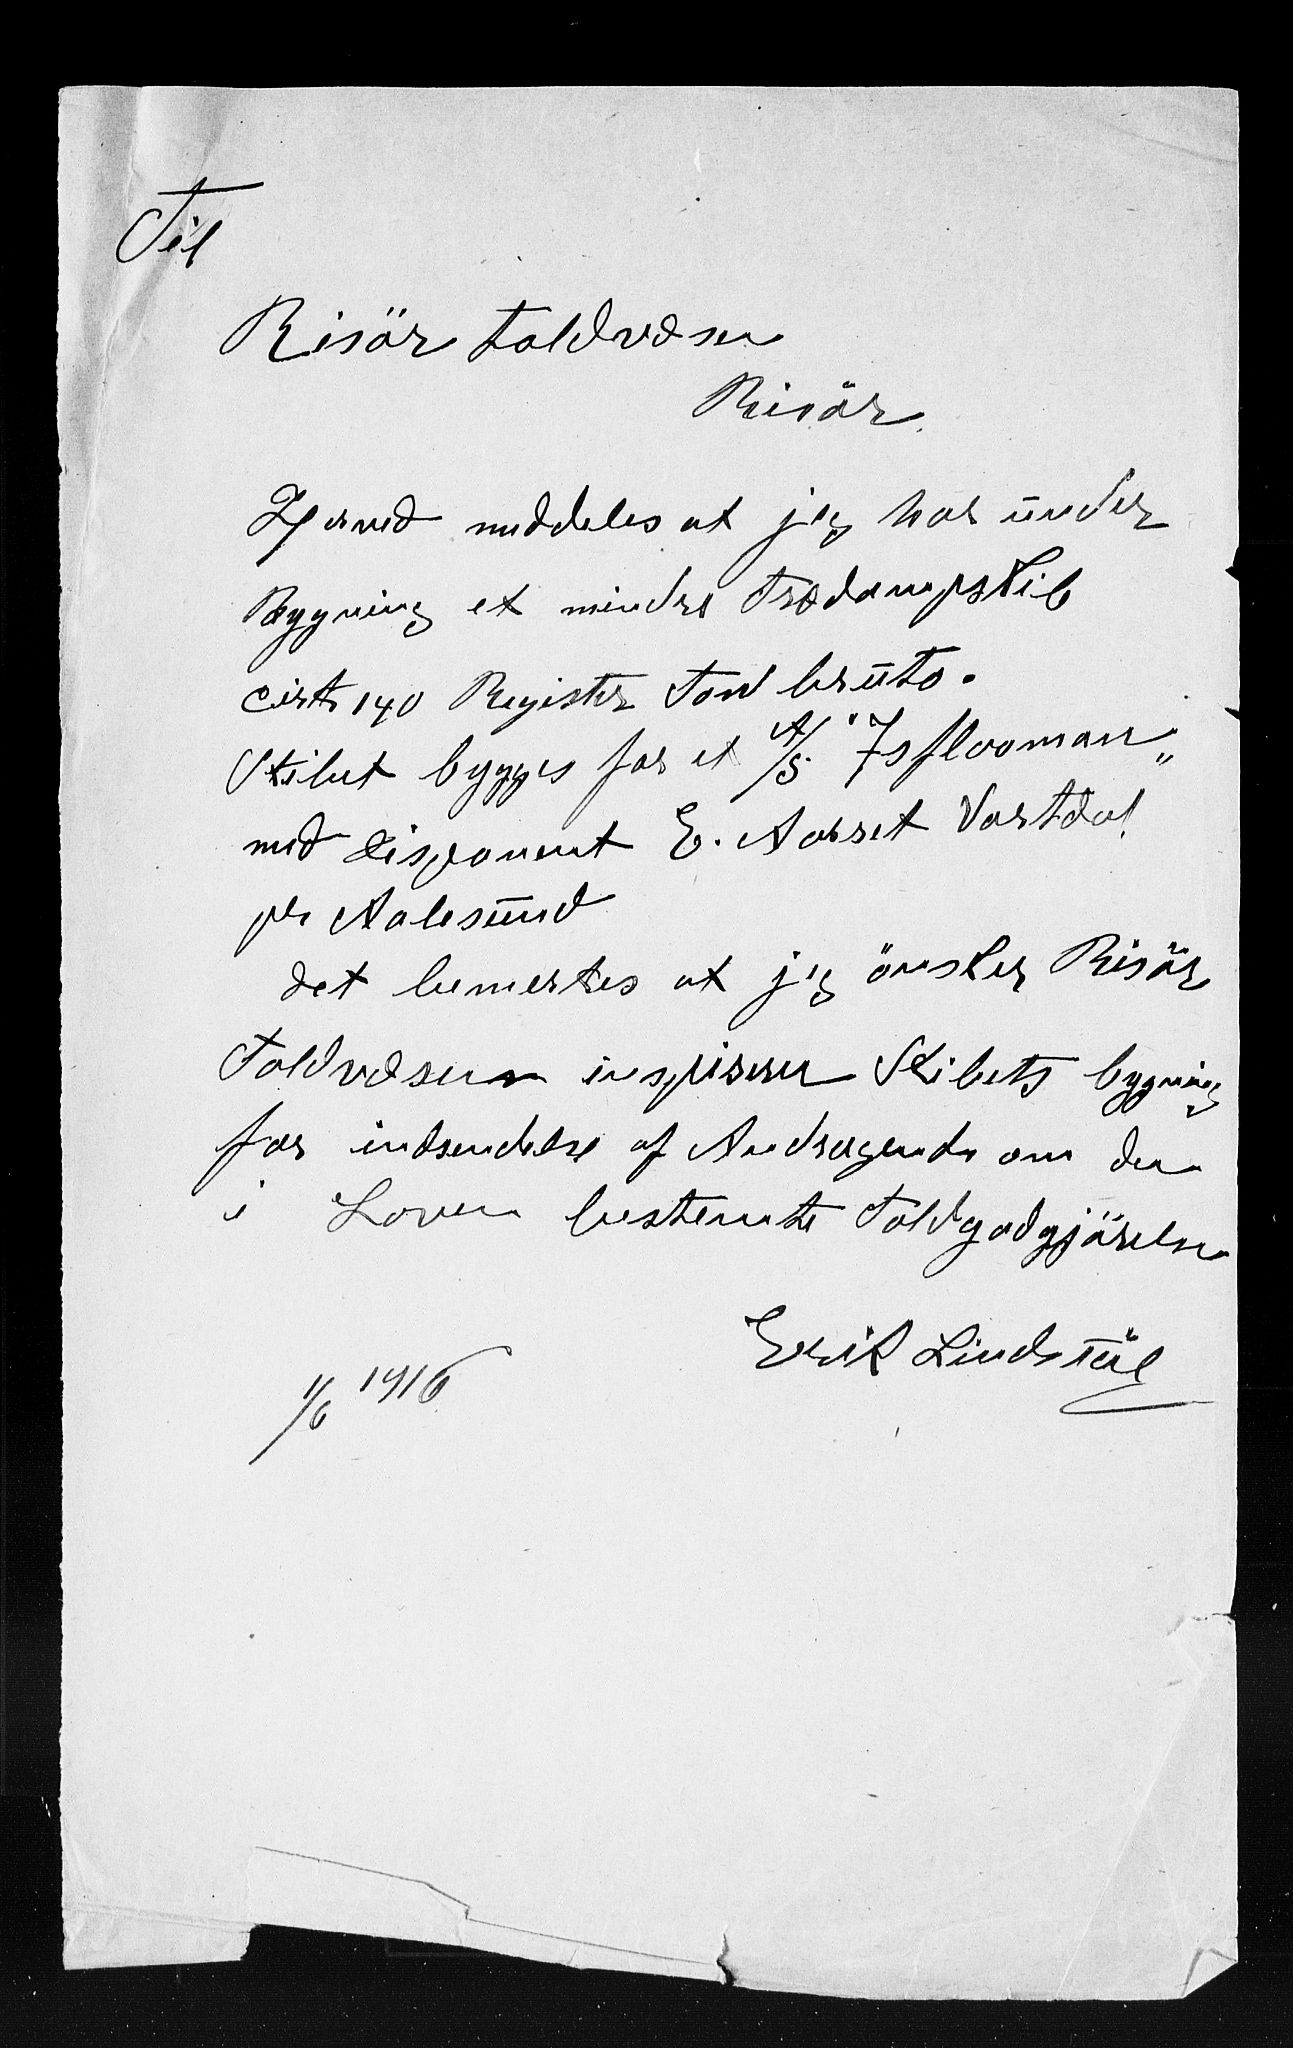 Til
Risör Toldvæsen
Risör.
Herved meddeles at jeg har under
Bygning et mindre Trædampskib
cirk 140 Register Ton brutto.
Skibet bygges for et A/S "Isflooman"
med disponent E. Aarset Vartdal
pr Aalesund
det bemerkes at jeg önsker Risör
Toldvæsen inspiserer Skibets bygning
for indsendelse af Andragende om den
i Loven bestemte Toldgodgjörelse
Erik Lindstøl
1/6 1916